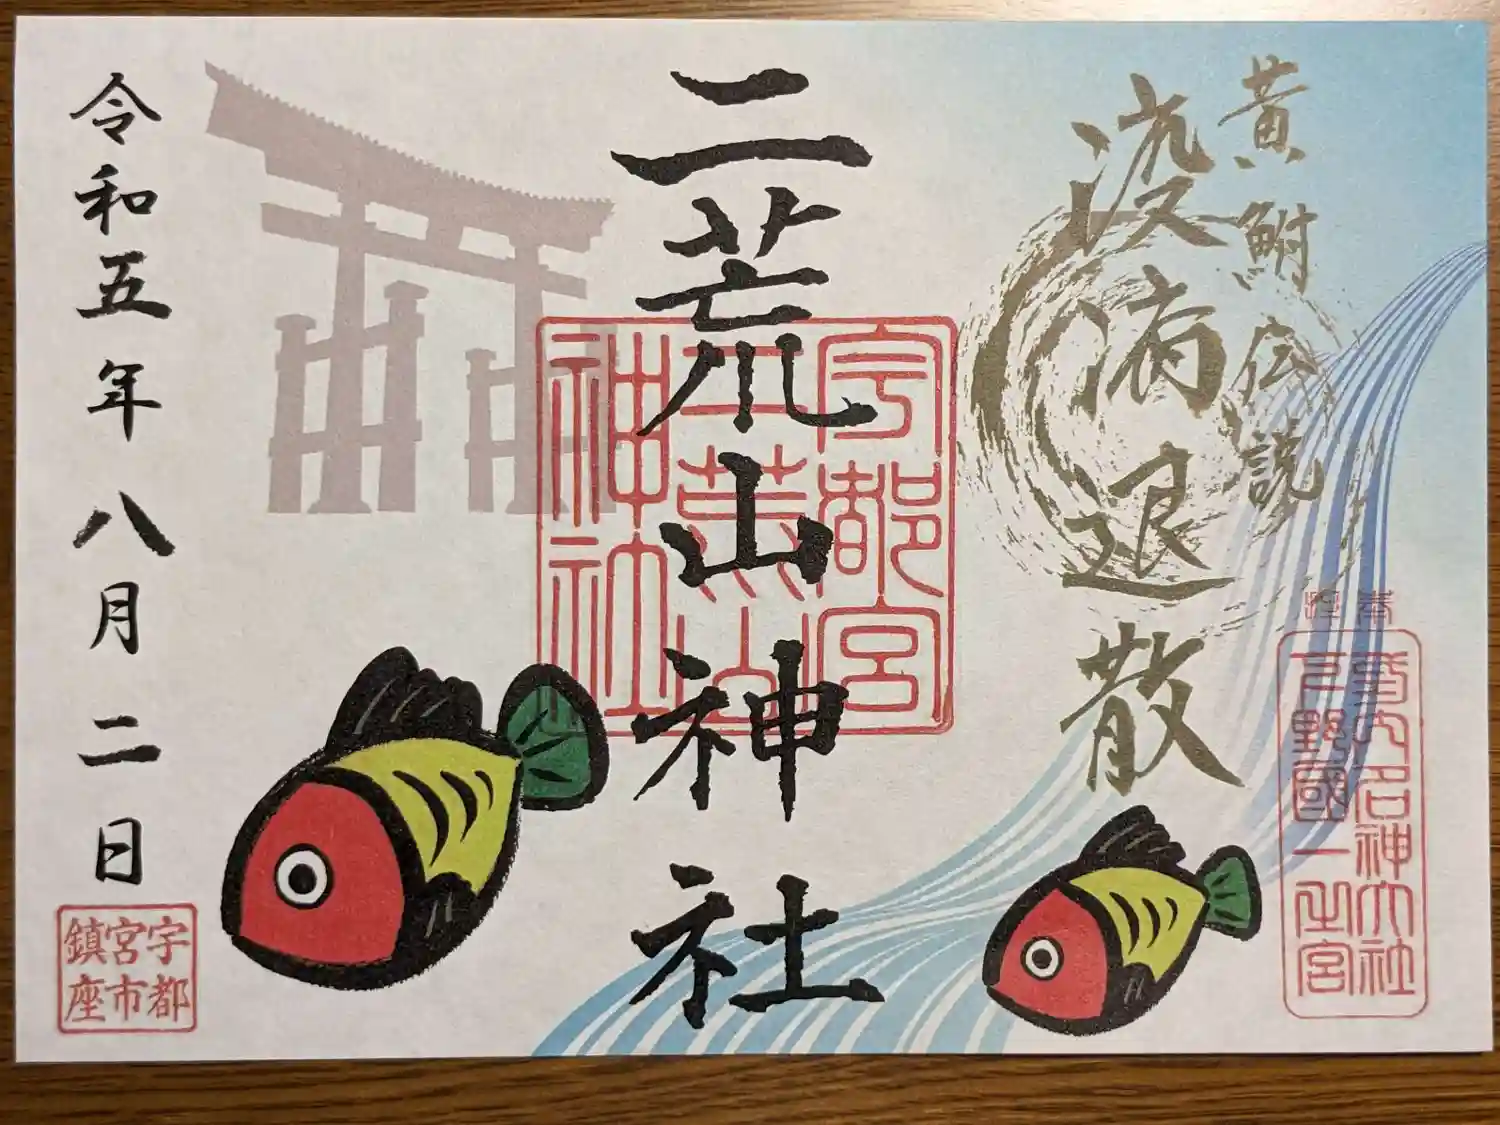 黄鮒伝説
疫病退散
式内名神大社
下野國一之宮
二荒山神社
宇都宮
二荒山
神社
令和五年八月二日
宇都
宮市
鎮座